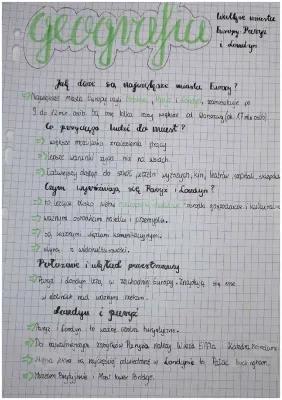 geografia
Wielkie miasta
Europy: Paryż
i Londyn
Jak duże są największe miasta Europy?
Największe miasta Europy czyli Paryż i Londyn, zamieszkuje po
9 do 12 mln osób
Co przyciąga ludzi do miast?
większe możliwości znalezienia pracy
lepsze warunki życia niż na wsiach.
Łatwiejszy dostęp do szkół wyższych, kin, teatrów, szpitali
Czym wyróżniają się Paryż i Londyn?
gospodarcze i kulturalne
ważnymi ośrodkami handlu i przemysłu.
są ważnymi węzłami komunikacyjnymi.
słyną z wielokulturowości.
Położenie i układ przestrzenny
Paryż i Londyn leżą w zachodniej Europy. Znajdują się one
w dolinach nad ważnymi rzekami.
Londyn i paryż
Paryż i Londyn to ważne centra turystyczne.
Do najważniejszych zabytków Paryża należy Wieża Eiffla i Katedra
w Londynie to Pałac Buckingham.
Muzeum Brytyjskie i Most Tower Bridge.